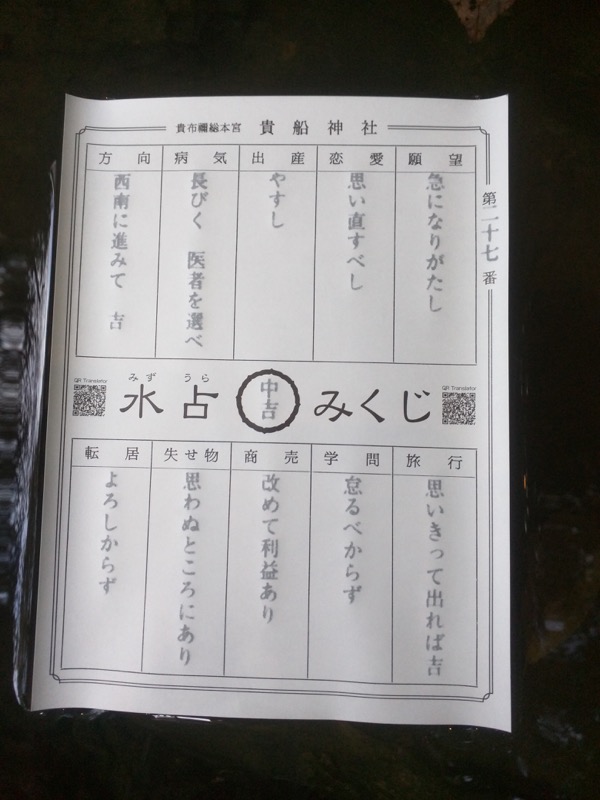 貴布禰総本宮 貴船神社
第二十七番
願望
急になりがたし
恋愛
思い直すべし
出産
やすし
病気
長びく 医者を選べ
方向
西南に進みて 吉
QR Translator
みずうら
水占
中吉
みくじ
QR Translator
旅行
思いきって出れば吉
学問
怠るべからず
商売
改めて利益あり
失せ物
思わぬところにあり
転居
よろしからず